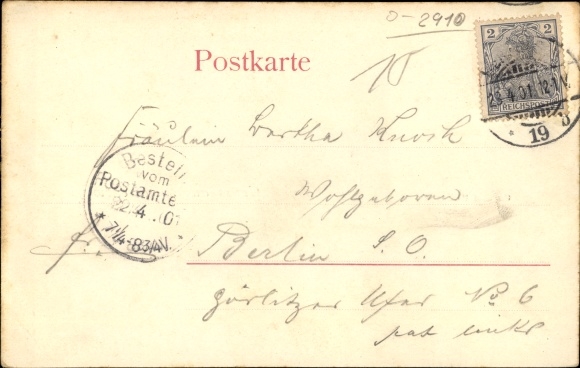 O-2910
Postkarte
2 2
REICHSPOST
4.01.12-1V.
19
Fräulein Bertha
Bestellt
vom
Postamte
22.4.01
* 7 1/4-8 3/4V.
Wohlgeboren
Berlin S. O.
Görlitzer Ufer No 6
links